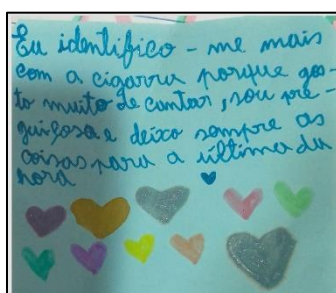 Eu identifico-me mais
com a cigarra porque gos-
to muito de cantar, sou pre-
guiçosa e deixo sempre as
coisas para a última da
hora